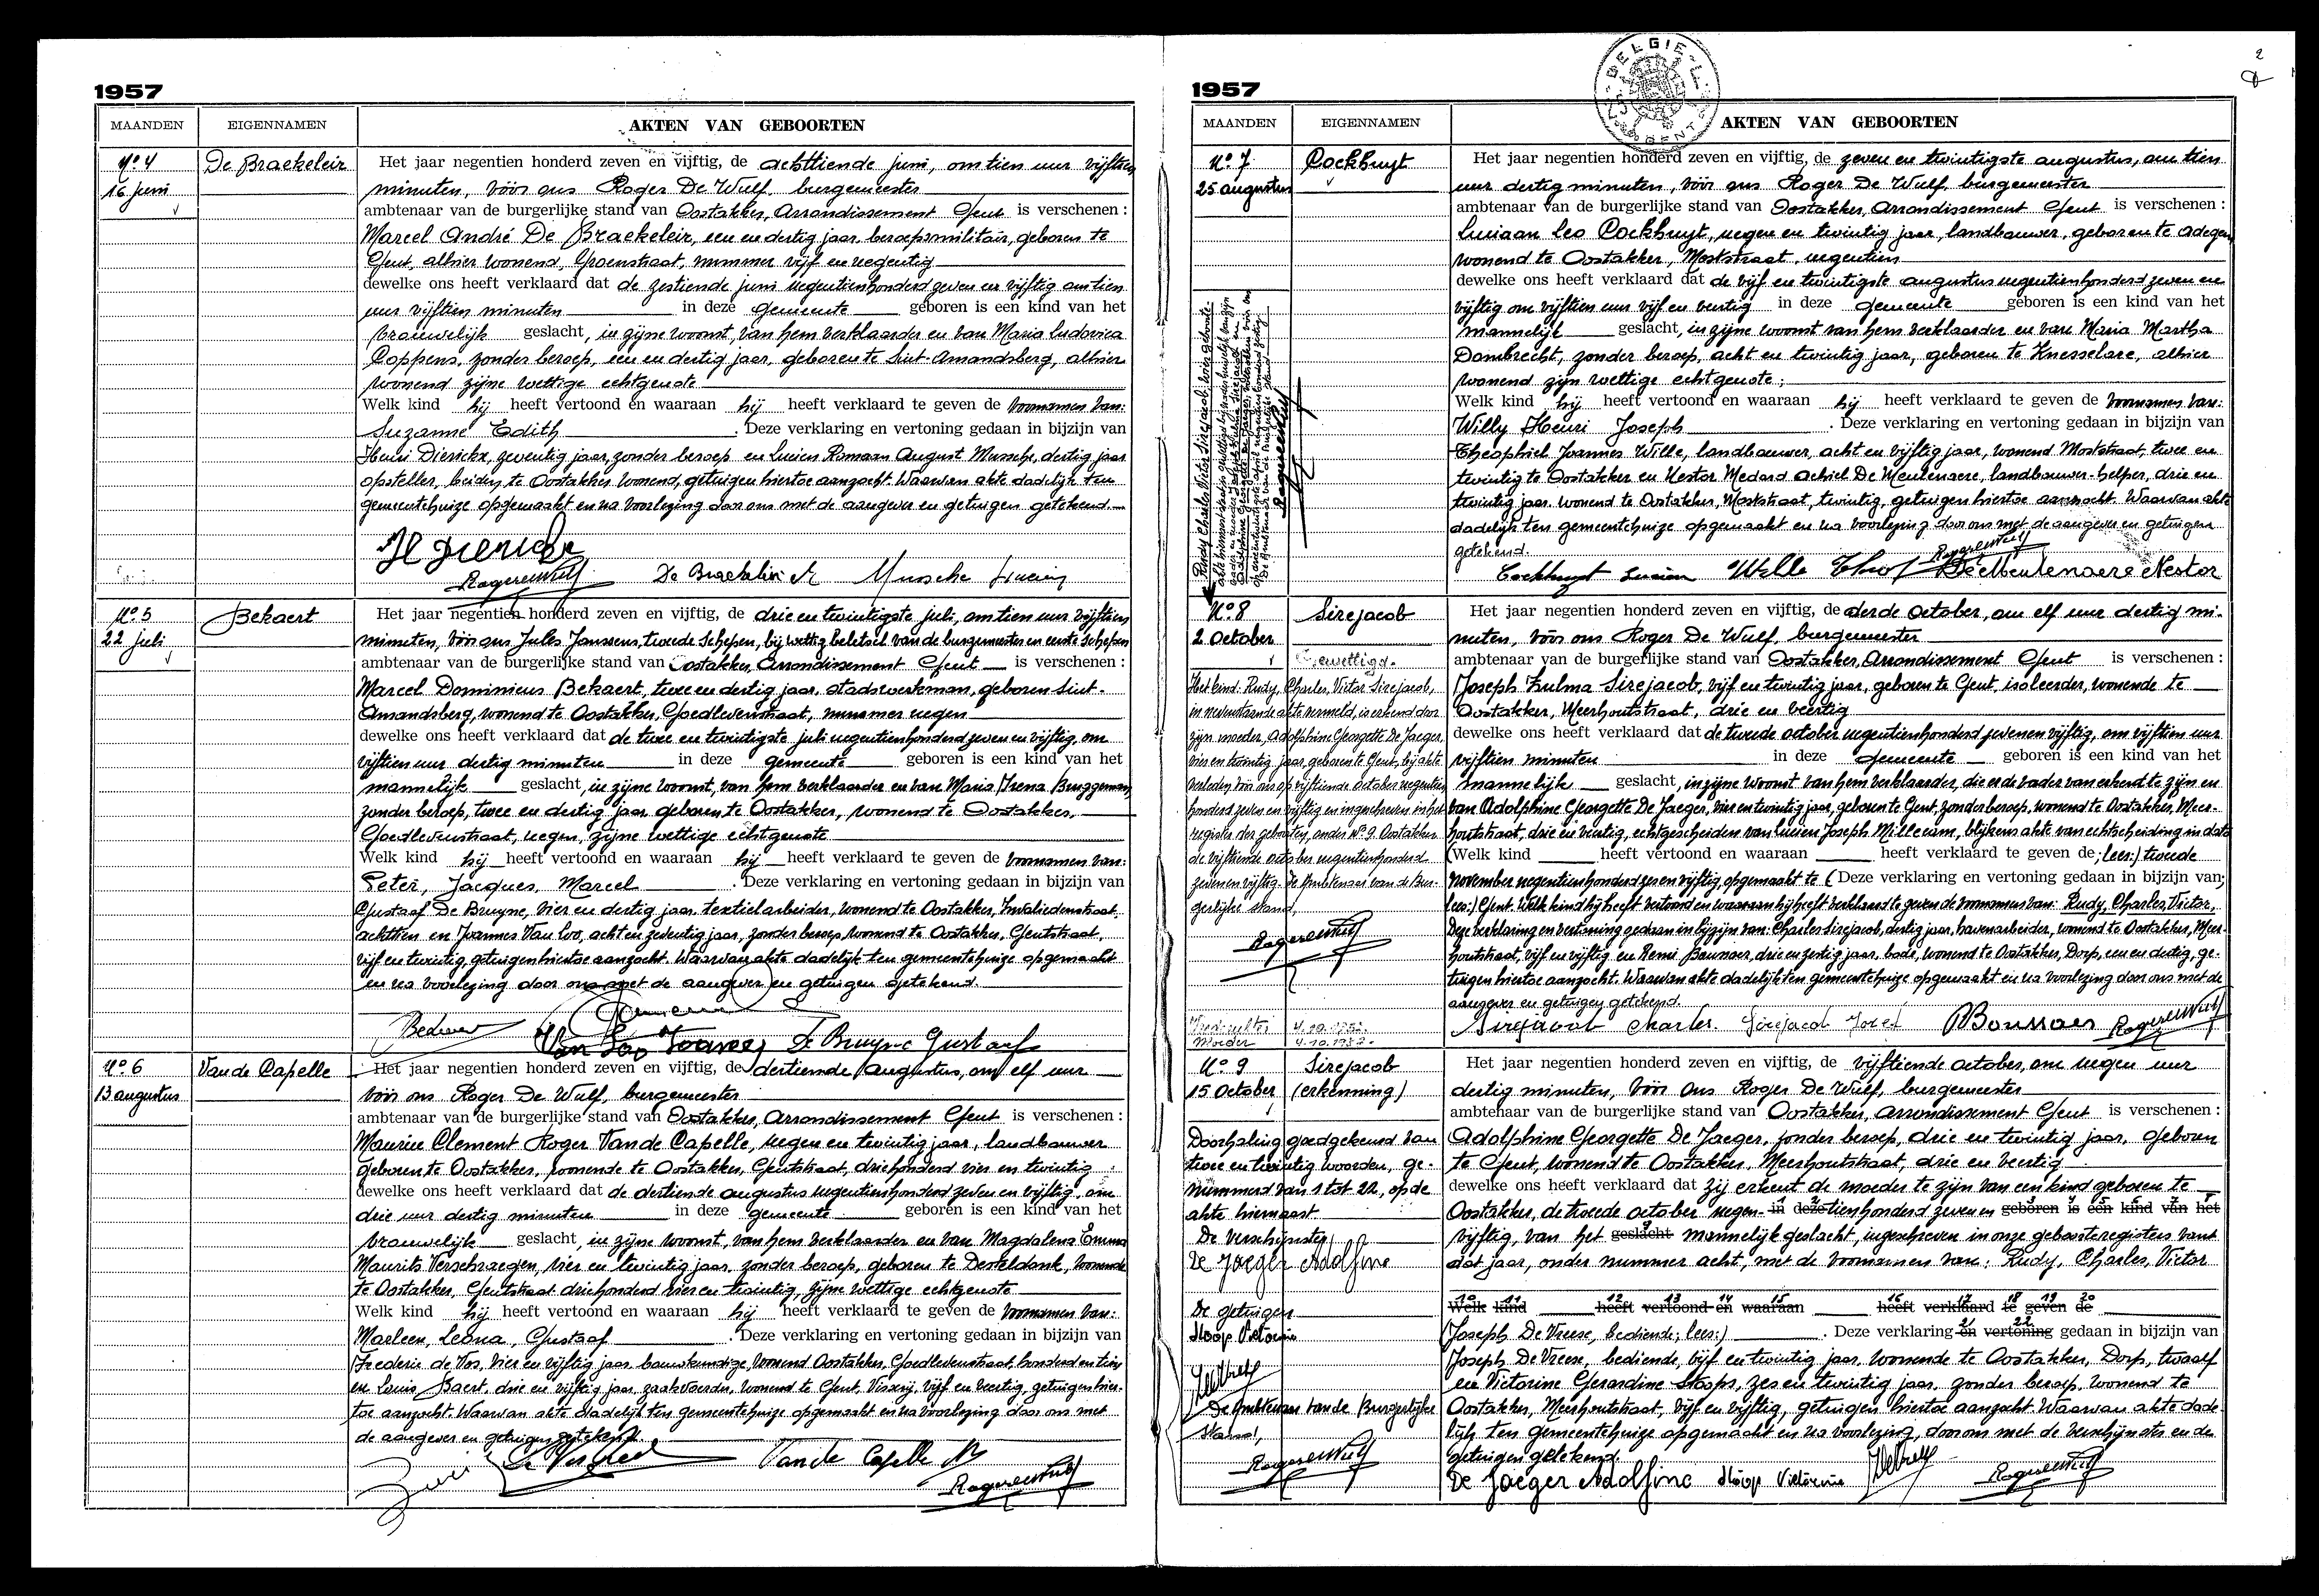 1957
MAANDEN EIGENNAMEN AKTEN VAN GEBOORTEN
No 4 De Braekeleir
16 juni
Het jaar negentien honderd zeven en vijftig, de achttiende juni, om tien uur vijftien
minuten, vóór ons Roger De Wulf, burgemeester
ambtenaar van de burgerlijke stand van Oostakker, Arrondissement Gent is verschenen :
Marcel André De Braekeleir, een en dertig jaar, beroepsmilitair, geboren te
Gent, alhier wonend, Groenstraat, nummer vijf en negentig
dewelke ons heeft verklaard dat de zestiende juni negentienhonderd zeven en vijftig om tien
uur vijftien minuten in deze gemeente geboren is een kind van het
vrouwelijk geslacht, in zijne woonst, van hem verklaarder en van Maria Ludovica
Coppens, zonder beroep, een en dertig jaar, geboren te Sint-Amandsberg, alhier
wonend zijne wettige echtgenote
Welk kind hij heeft vertoond en waaraan hij heeft verklaard te geven de voornamen van:
Suzanne Edith . Deze verklaring en vertoning gedaan in bijzijn van
Henri Dierickx, zeventig jaar, zonder beroep en Lucien Romaan August Mussche, dertig jaar
opsteller, beiden te Oostakker wonend, getuigen hiertoe aanzocht. Waarvan akte dadelijk ten
gemeentehuize opgemaakt en na voorlezing door ons met de aangever en getuigen getekend.
H Dierickx
RogerdeWulf De Braekeleir M Mussche Lucien
No 5 Bekaert
22 juli
Het jaar negentien honderd zeven en vijftig, de drie en twintigste juli, om tien uur vijftien
minuten, vóór ons Jules Janssens, tweede schepen, bij wettig beletsel van de burgemeester en eerste schepen
ambtenaar van de burgerlijke stand van Oostakker, Arrondissement Gent is verschenen :
Marcel Dominicus Bekaert, twee en dertig jaar, stadswerkman, geboren Sint-
Amandsberg, wonend te Oostakker, Goedlevenstraat, nummer negen
dewelke ons heeft verklaard dat de twee en twintigste juli negentienhonderd zeven en vijftig, om
vijftien uur dertig minuten in deze gemeente geboren is een kind van het
mannelijk geslacht, in zijne woonst, van hem verklaarder en van Maria Irena Bruggeman,
zonder beroep, twee en dertig jaar geboren te Oostakker, wonend te Oostakker,
Goedlevenstraat, negen, zijne wettige echtgenote
Welk kind hij heeft vertoond en waaraan hij heeft verklaard te geven de voornamen van:
Peter, Jacques, Marcel . Deze verklaring en vertoning gedaan in bijzijn van
Gustaaf De Bruyne, vier en dertig jaar, textielarbeider, wonend te Oostakker, Invaliedenstraat,
achttien en Joannes Van Loo, acht en zeventig jaar, zonder beroep, wonend te Oostakker, Gentstraat,
vijf en twintig, getuigen hiertoe aanzocht. Waarvan akte dadelijk ten gemeentehuize opgemaakt
en na voorlezing door ons met de aangever en getuigen getekend.
Van Loo Joannes De Bruyne Gustaaf
No 6 Van de Capelle
13 augustus
Het jaar negentien honderd zeven en vijftig, de dertiende augustus, om elf uur
vóór ons Roger De Wulf, burgemeester
ambtenaar van de burgerlijke stand van Oostakker, Arrondissement Gent is verschenen :
Maurice Clement Roger Van de Capelle, negen en twintig jaar, landbouwer
geboren te Oostakker, wonende te Oostakker, Gentstraat, driehonderd vier en twintig
dewelke ons heeft verklaard dat de dertiende augustus negentienhonderd zeven en vijftig, om
drie uur dertig minuten in deze gemeente geboren is een kind van het
vrouwelijk geslacht, in zijne woonst, van hem verklaarder en van Magdalena Emma
Maurits Verschraegen, vier en twintig jaar, zonder beroep, geboren te Desteldonk, wonende
te Oostakker, Gentstraat driehonderd vier en twintig, zijne wettige echtgenote
Welk kind hij heeft vertoond en waaraan hij heeft verklaard te geven de voornamen van:
Marleen, Leona, Gustaaf . Deze verklaring en vertoning gedaan in bijzijn van
Frederic de Vos, vier en vijftig jaar, bouwkundige, wonend Oostakker, Goedlevenstraat, honderd en tien
en Louis Baert, drie en vijftig jaar zaakvoerder, wonend te Gent, Visserij, vijf en veertig, getuigen hier-
toe aanzocht. Waarvan akte dadelijk ten gemeentehuize opgemaakt en na voorlezing door ons met
de aangever en getuigen getekend.
Van de Capelle M
RogerdeWulf
2
BELGIE
1957
MAANDEN EIGENNAMEN AKTEN VAN GEBOORTEN
No 7 Cockhuyt
25 augustus
Het jaar negentien honderd zeven en vijftig, de zeven en twintigste augustus, om tien
uur dertig minuten, vóór ons Roger De Wulf, burgemeester
ambtenaar van de burgerlijke stand van Oostakker, Arrondissement Gent is verschenen :
Luciaan Leo Cockhuyt, negen en twintig jaar, landbouwer, geboren te Adegem,
wonend te Oostakker, Mostkstraat, negentien
dewelke ons heeft verklaard dat de vijf en twintigste augustus negentienhonderd zeven en
vijftig om vijftien uur vijf en veertig in deze gemeente geboren is een kind van het
mannelijk geslacht, in zijne woonst van hem verklaarder en van Maria Martha
Dombrecht, zonder beroep, acht en twintig jaar, geboren te Knesselare, alhier
wonend zijn wettige echtgenote;
Welk kind hij heeft vertoond en waaraan hij heeft verklaard te geven de voornamen van:
Willy Henri Joseph . Deze verklaring en vertoning gedaan in bijzijn van
Theophiel Joannes Wille, landbouwer, acht en vijftig jaar, wonend Mostkstraat, twee en
twintig te Oostakker en Nestor Medard Achiel De Meulenaere, landbouwer-helper, drie en
twintig jaar wonend te Oostakker, Mostkstraat, twintig, getuigen hiertoe aanzocht. Waarvan akte
dadelijk ten gemeentehuize opgemaakt en na voorlezing door ons met de aangever en getuigen
getekend.
RogerdeWulf
Cockhuyt Lucien Wille Theof De Meulenaere Nestor
No 8 Sirejacob
2 October
Gewettigd.
Het kind: Rudy, Charles, Victor Sirejacob,
in nevenstaande akte vermeld, is erkend door
zijn moeder, Adolphine Georgette De Jaeger,
vier en twintig jaar, geboren te Gent, bij akte
verleden vóór ons op vijftiende October negentien
honderd zeven en vijftig en ingeschreven in het
register der geboorten, onder No 9. Oostakker
de vijftiende october negentienhonderd
zeven en vijftig. De Ambtenaar van de Bur-
gerlijke stand,
RogerdeWulf
Moeder
Het jaar negentien honderd zeven en vijftig, de derde October, om elf uur dertig mi-
nuten, vóór ons Roger De Wulf, burgemeester
ambtenaar van de burgerlijke stand van Oostakker, Arrondissement Gent is verschenen :
Joseph Zulma Sirejacob, vijf en twintig jaar, geboren te Gent, isoleerder, wonende te
Oostakker, Meerhoutstraat, drie en veertig
dewelke ons heeft verklaard dat de tweede october negentienhonderd zeven en vijftig, om vijftien uur
vijftien minuten in deze gemeente geboren is een kind van het
mannelijk geslacht, in zijne woonst van hem verklaarder, die er de vader van erkend te zijn en
van Adolphine Georgette De Jaeger, vier en twintig jaar, geboren te Gent, zonder beroep, wonend te Oostakker, Meer-
houtstraat, drie en veertig, echtgescheiden van Lucien Joseph Millecam, blijkens akte van echtscheiding in dato
(Welk kind heeft vertoond en waaraan heeft verklaard te geven de; lees:) tweede
november negentienhonderd zes en vijftig, opgemaakt te (Deze verklaring en vertoning gedaan in bijzijn van;
lees:) Gent. Welk kind hij heeft vertoond en waaraan hij heeft verklaard te geven de voornamen van: Rudy, Charles, Victor,
Deze verklaring en vertoning gedaan in bijzijn van: Charles Sirejacob, dertig jaar, havenarbeider, wonend te Oostakker, Meer-
houtstraat, vijf en vijftig en Remi Boussaer, drie en zestig jaar, bode, wonend te Oostakker, Dorp, een en dertig, ge-
tuigen hiertoe aanzocht. Waarvan akte dadelijk ten gemeentehuize opgemaakt en na voorlezing door ons met de
aangever en getuigen getekend.
Sirejacob Charles. Sirejacob Jozef Boussaer RogerdeWulf
No 9 Sirejacob
15 October (erkenning)
Doorhaling goedgekeurd van
twee en twintig woorden, ge-
nummerd van 1 tot 22, op de
akte hiernaast
De verschijnster,
De Jaeger Adolfine
De getuigen
Stoop Victorine
De Ambtenaar van de Burgerlijke
Stand,
RogerdeWulf
Het jaar negentien honderd zeven en vijftig, de vijftiende october, om negen uur
dertig minuten, vóór ons Roger De Wulf, burgemeester
ambtenaar van de burgerlijke stand van Oostakker, Arrondissement Gent is verschenen :
Adolphine Georgette De Jaeger, zonder beroep, drie en twintig jaar, geboren
te Gent, wonend te Oostakker, Meerhoutstraat, drie en veertig
dewelke ons heeft verklaard dat zij erkent de moeder te zijn van een kind geboren te
Oostakker, de tweede october negen- in deze tienhonderd zeven en geboren is een kind van het
vijftig, van het geslacht mannelijk geslacht, ingeschreven in onze geboorteregisters van
dat jaar, onder nummer acht, met de voornamen van: Rudy, Charles, Victor
Welk kind heeft vertoond en waaraan heeft verklaard te geven de
(Joseph De Vreese, bediende; lees:) . Deze verklaring en vertoning gedaan in bijzijn van
Joseph De Vreese, bediende, vijf en twintig jaar, wonende te Oostakker, Dorp, twaalf
en Victorine Gerardine Stoops, zes en twintig jaar, zonder beroep, wonend te
Oostakker, Meerhoutstraat, vijf en vijftig, getuigen hiertoe aanzocht. Waarvan akte dade-
lijk ten gemeentehuize opgemaakt en na voorlezing, door ons met de verschijnster en de
getuigen getekend.
De Jaeger Adolfine Stoop Victorine RogerdeWulf